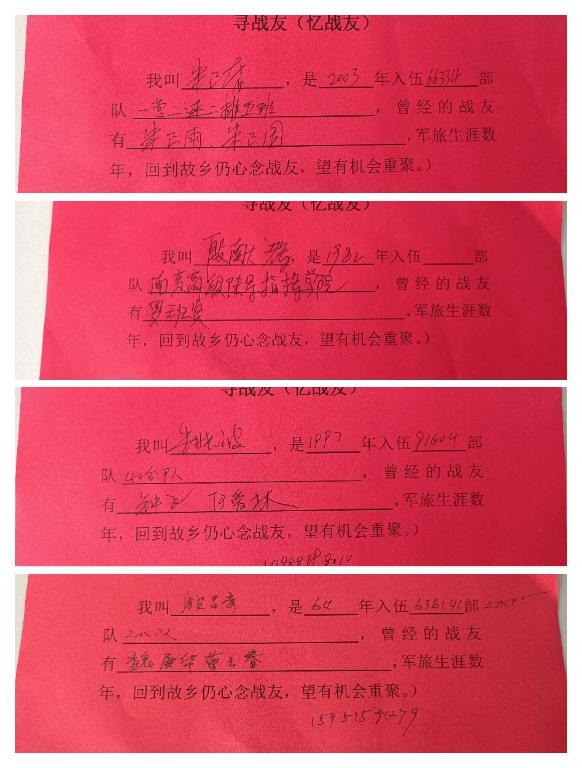 寻战友（忆战友）
我叫朱正春，是2003年入伍66334部
队一营二连二排五班，曾经的战友
有朱正雨、朱正国，军旅生涯数
年，回到故乡仍心念战友，望有机会重聚。）
寻战友（忆战友）
我叫殷南，是1982年入伍部
队南京高级陆军指挥学院，曾经的战友
有罗班贤，军旅生涯数
年，回到故乡仍心念战友，望有机会重聚。）
寻战友（忆战友）
我叫，是1997年入伍91604部
队40分队，曾经的战友
有何爱林，军旅生涯数
年，回到故乡仍心念战友，望有机会重聚。）
我叫，是64年入伍636141部
队，曾经的战友
有魏庆华，军旅生涯数
年，回到故乡仍心念战友，望有机会重聚。）